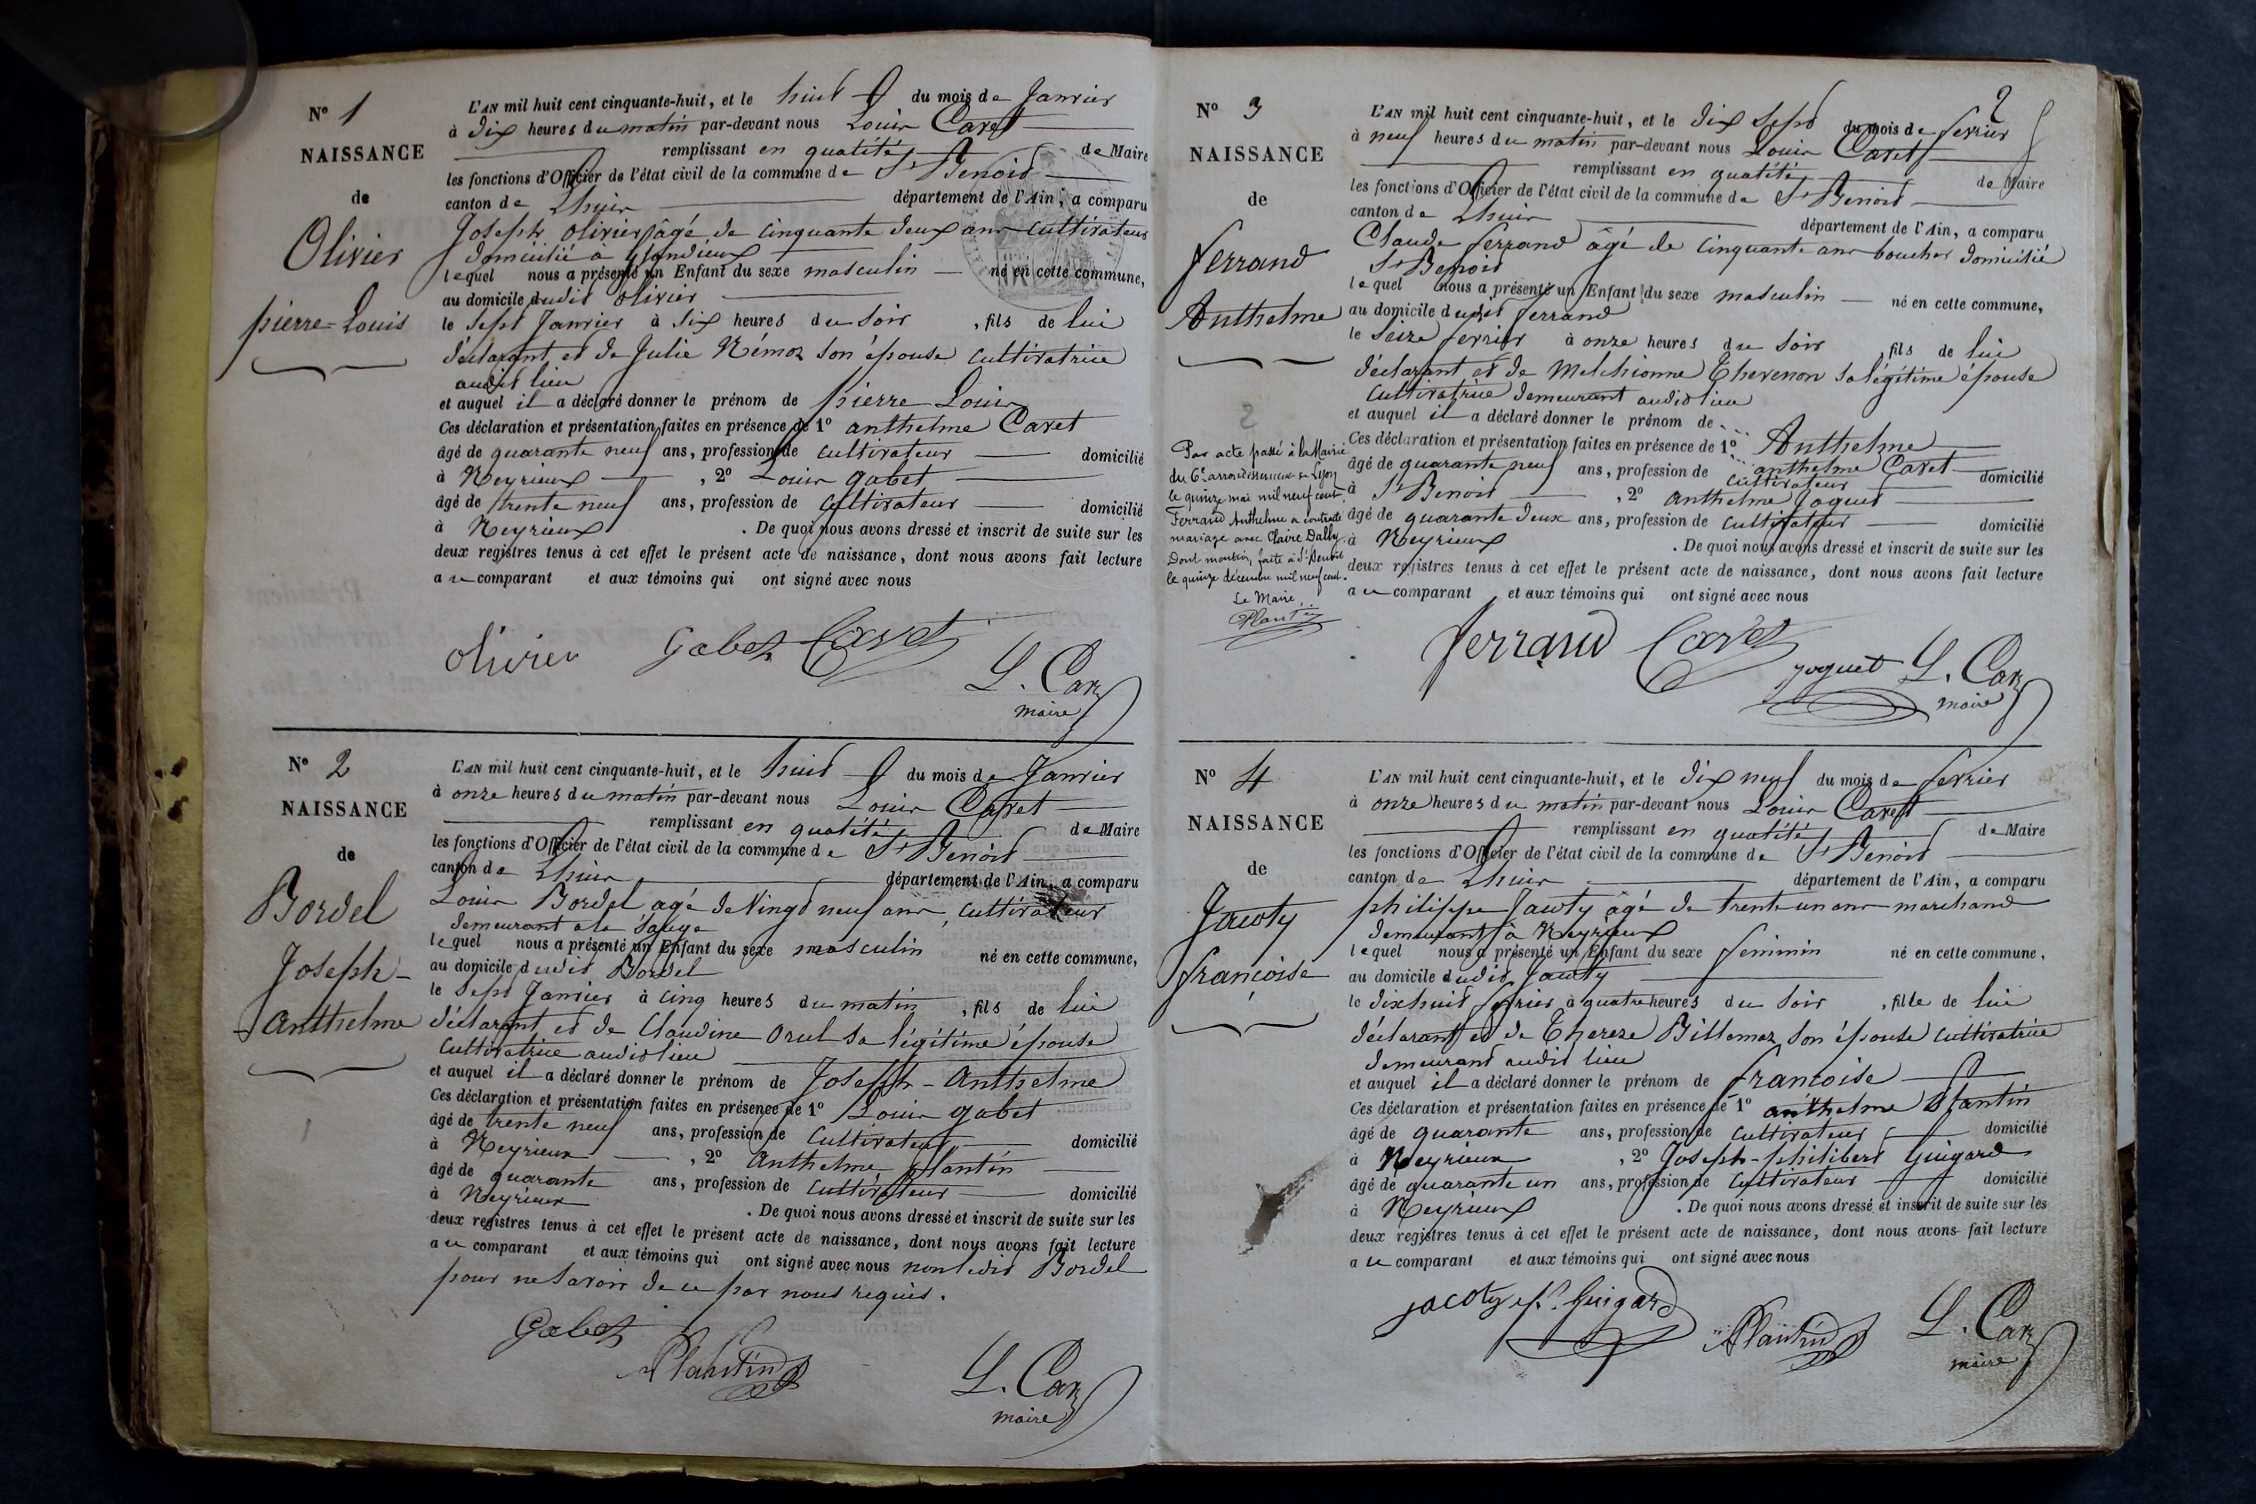 N° 1
NAISSANCE
de
Olivier
pierre-Louis
L'AN mil huit cent cinquante-huit, et le huit du mois de Janvier
à dix heures du matin par-devant nous Louis Cavet
remplissant en qualité de Maire
les fonctions d'Officier de l'état civil de la commune de St Benoit
canton de Lhuis département de l'Ain, a comparu
Joseph olivier âgé de cinquante deux ans cultivateur
domicilié à
lequel nous a présenté un Enfant du sexe masculin né en cette commune,
au domicile dudit olivier
le sept Janvier à six heures du soir, fils de lui
déclarant et de Julie Némoz son épouse cultivatrice
audit lieu
et auquel il a déclaré donner le prénom de pierre Louis
Ces déclaration et présentation faites en présence de 1° anthelme Cavet
âgé de quarante neuf ans, profession de cultivateur domicilié
à Neyrieux, 2° Louis gabet
âgé de trente neuf ans, profession de cultivateur domicilié
à Neyrieux. De quoi nous avons dressé et inscrit de suite sur les
deux registres tenus à cet effet le présent acte de naissance, dont nous avons fait lecture
au comparant et aux témoins qui ont signé avec nous
olivier Gabet Cavet
L. Cavet
maire
N° 2
NAISSANCE
de
Bordel
Joseph-
anthelme
L'AN mil huit cent cinquante-huit, et le huit du mois de Janvier
à onze heures du matin par-devant nous Louis Cavet
remplissant en qualité de Maire
les fonctions d'Officier de l'état civil de la commune de St Benoit
canton de Lhuis département de l'Ain, a comparu
Louis Bordel agé de Vingt neuf ans, cultivateur
demeurant a la Sauge
lequel nous a présenté un Enfant du sexe masculin né en cette commune,
au domicile dudit Bordel
le sept Janvier à cinq heures du matin, fils de lui
déclarant et de Claudine Orul sa légitime épouse
cultivatrice audit lieu
et auquel il a déclaré donner le prénom de Joseph-Anthelme
Ces déclaration et présentation faites en présence de 1° Louis gabet
âgé de trente neuf ans, profession de cultivateur domicilié
à Neyrieux, 2° Anthelme plantin
âgé de quarante ans, profession de cultivateur domicilié
à Neyrieux. De quoi nous avons dressé et inscrit de suite sur les
deux registres tenus à cet effet le présent acte de naissance, dont nous avons fait lecture
au comparant et aux témoins qui ont signé avec nous non ledit Bordel
pour ne savoir de ce par nous requis.
Gabet
Plantin
L. Cavet
maire
2
N° 3
NAISSANCE
de
ferrand
Anthelme
2
Par acte passé à la Mairie
du 6e arrondissement de Lyon
le quinze mai mil neuf cent
Ferrand Anthelme a contracté
mariage avec Claire Dally.
Dont mention faite à St Benoit
le quinze décembre mil neuf cent.
Le Maire
Plantin
L'AN mil huit cent cinquante-huit, et le dix sept du mois de fevrier
à neuf heures du matin par-devant nous Louis Cavet
remplissant en qualité de Maire
les fonctions d'Officier de l'état civil de la commune de St Benoit
canton de Lhuis département de l'Ain, a comparu
Claude ferrand âgé de cinquante ans boucher domicilié
St Benoit
lequel nous a présenté un Enfant du sexe masculin né en cette commune,
au domicile dudit ferrand
le seize fevrier à onze heures du soir, fils de lui
déclarant et de Melchionne Thevenon sa légitime épouse
cultivatrice demeurant audit lieu
et auquel il a déclaré donner le prénom de
Anthelme
Ces déclaration et présentation faites en présence de 1° anthelme Cavet
âgé de quarante neuf ans, profession de cultivateur domicilié
à St Benoit, 2° anthelme Joguet
âgé de quarante deux ans, profession de cultivateur domicilié
à Neyrieux. De quoi nous avons dressé et inscrit de suite sur les
deux registres tenus à cet effet le présent acte de naissance, dont nous avons fait lecture
au comparant et aux témoins qui ont signé avec nous
ferrand Cavet
joguet L. Cavet
maire
N° 4
NAISSANCE
de
Jacoty
françoise
L'AN mil huit cent cinquante-huit, et le dix neuf du mois de fevrier
à onze heures du matin par-devant nous Louis Cavet
remplissant en qualité de Maire
les fonctions d'Officier de l'état civil de la commune de St Benoit
canton de Lhuis département de l'Ain, a comparu
philippe Jacoty âgé de trente un ans marchand
demeurant à Neyrieux
lequel nous a présenté un Enfant du sexe feminin né en cette commune,
au domicile dudit Jacoty
le dixhuit fevrier à quatre heures du soir, fille de lui
déclarant et de Thereze Billemaz son épouse cultivatrice
demeurant audit lieu
et auquel il a déclaré donner le prénom de francoise
Ces déclaration et présentation faites en présence de 1° anthelme plantin
âgé de quarante ans, profession de cultivateur domicilié
à Neyrieux, 2° Joseph-philibert Guigard
âgé de quarante un ans, profession de cultivateur domicilié
à Neyrieux. De quoi nous avons dressé et inscrit de suite sur les
deux registres tenus à cet effet le présent acte de naissance, dont nous avons fait lecture
au comparant et aux témoins qui ont signé avec nous
jacoty Guigard
Plantin L. Cavet
maire